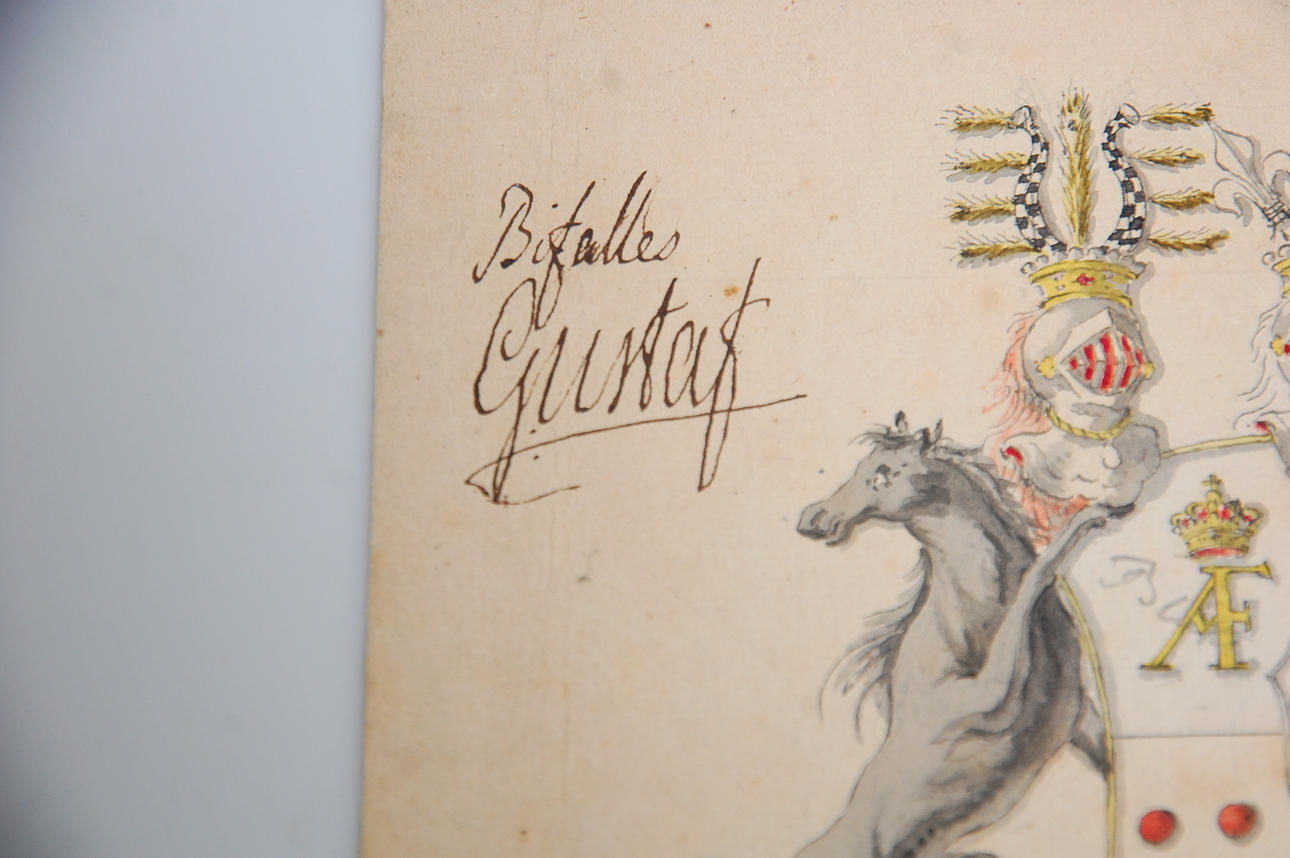 Bifalles
Gustaf
AF